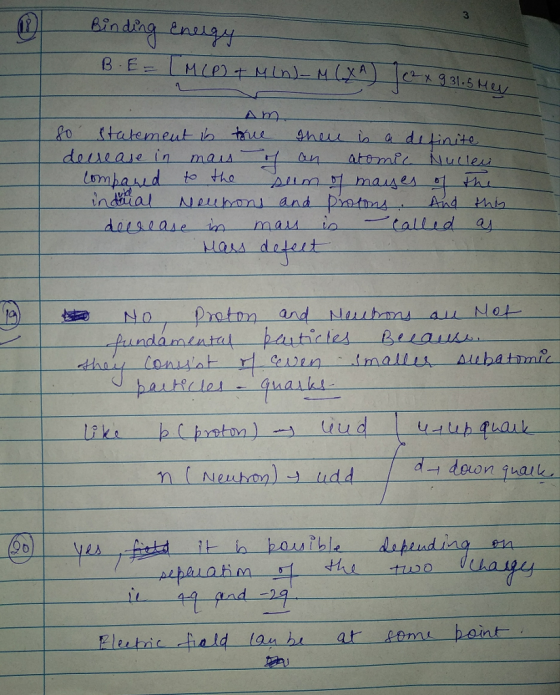 3
18 Binding Energy
B.E = [M(P) + M(n) - M(X^A)] c² × 931.5 Mev
Δm
So statement is true there is a definite
decrease in mass of an atomic Nuclei
compared to the sum of masses of the
Neutrons and Protons. And this
decrease in mass is called as
Mass defect
19 No, Proton and Neutrons are Not
fundamental particles Because.
they consist of even smaller subatomic
particles - quarks.
Like p (proton) → uud | u → up quark
n (Neutron) → udd | d → down quark.
20 Yes, it is possible depending on
separation of the two charges
ie +q and -2q.
Electric field can be at some point.